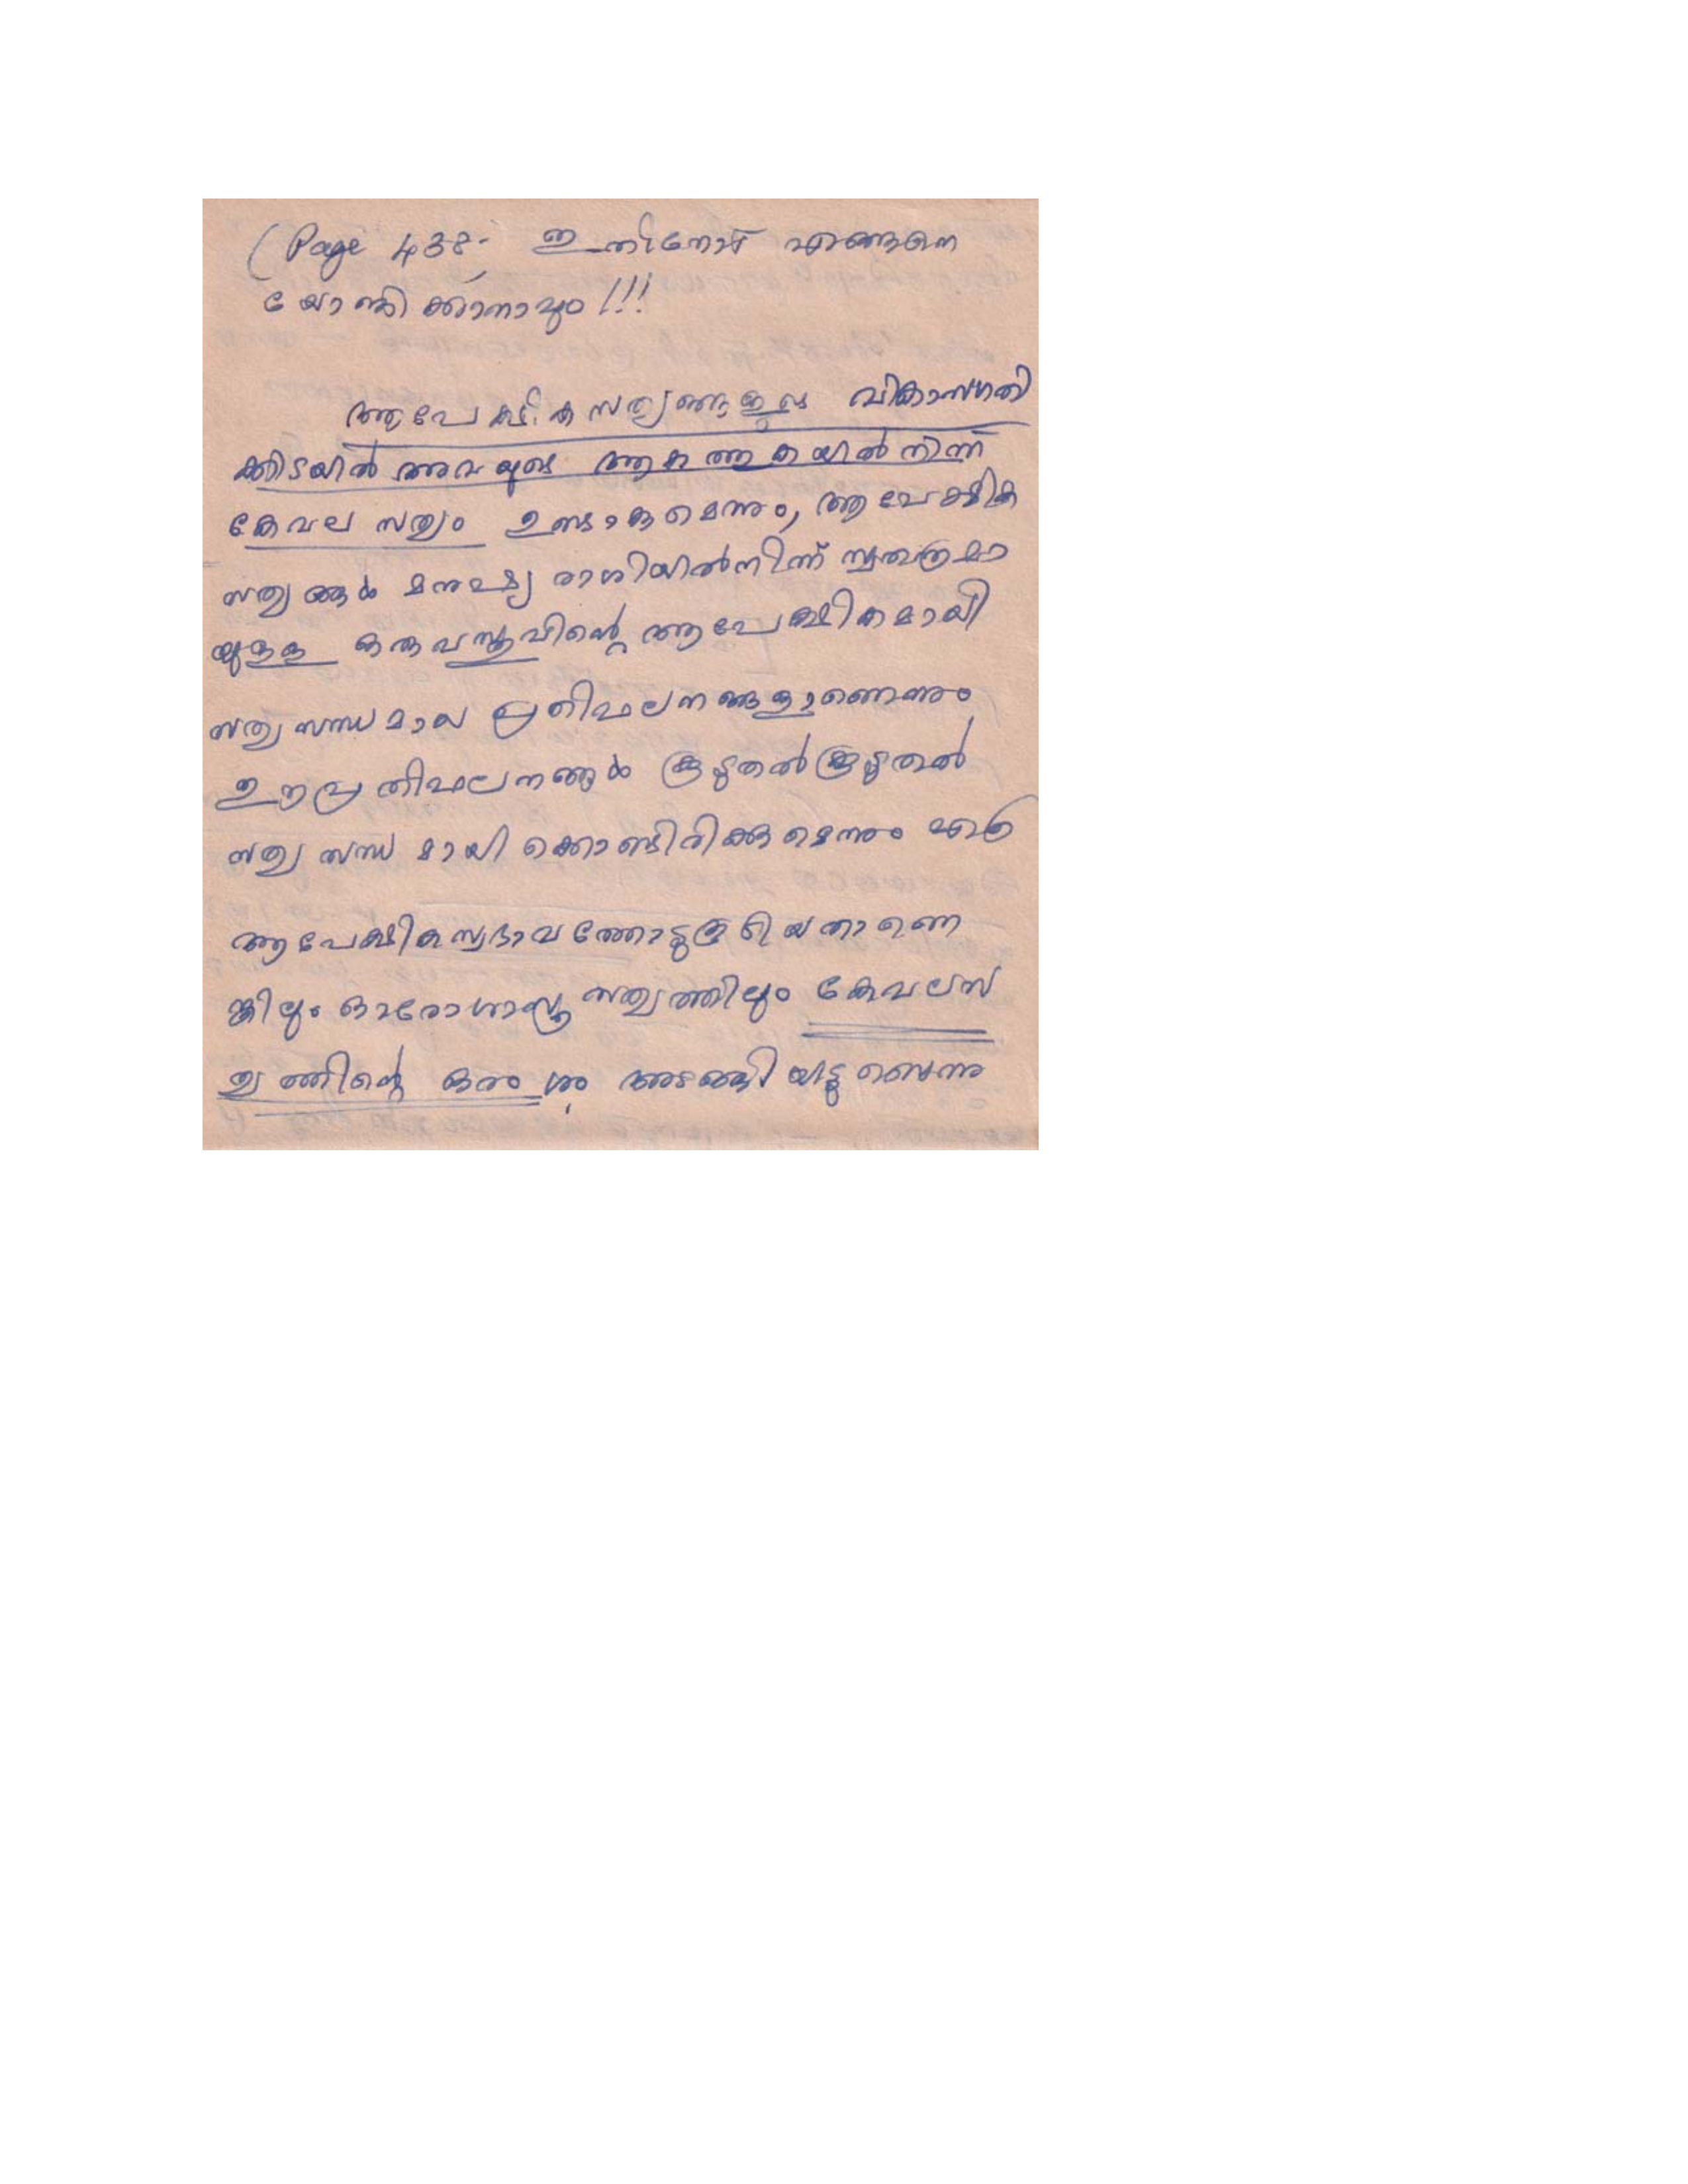 (Page 438; ഇതിനോട് എങ്ങനെ
യോജിക്കാനാവും!!!
ആപേക്ഷിക സത്യങ്ങളുടെ വികാസഗതി
ക്കിടയിൽ അവയുടെ ആകത്തുകയിൽ നിന്ന്
കേവല സത്യം ഉണ്ടാകുമെന്നും, ആപേക്ഷിക
സത്യങ്ങൾ മനുഷ്യ രാശിയിൽനിന്ന് സ്വതന്ത്രമാ
യുള്ള ഒരു വസ്തുവിന്റെ ആപേക്ഷികമായി
സത്യസന്ധമായ പ്രതിഫലനങ്ങളാണെന്നും
ഈ പ്രതിഫലനങ്ങൾ കൂടുതൽ കൂടുതൽ
സത്യസന്ധമായി ക്കൊണ്ടിരിക്കുമെന്നും
ആപേക്ഷികസ്വഭാവത്തോടുകൂടിയതാണെ
ങ്കിലും ഓരോ ശാസ്ത്ര സത്യത്തിലും കേവലസ
ത്യത്തിന്റെ ഒരംശം അടങ്ങിയിട്ടുണ്ടെന്നു